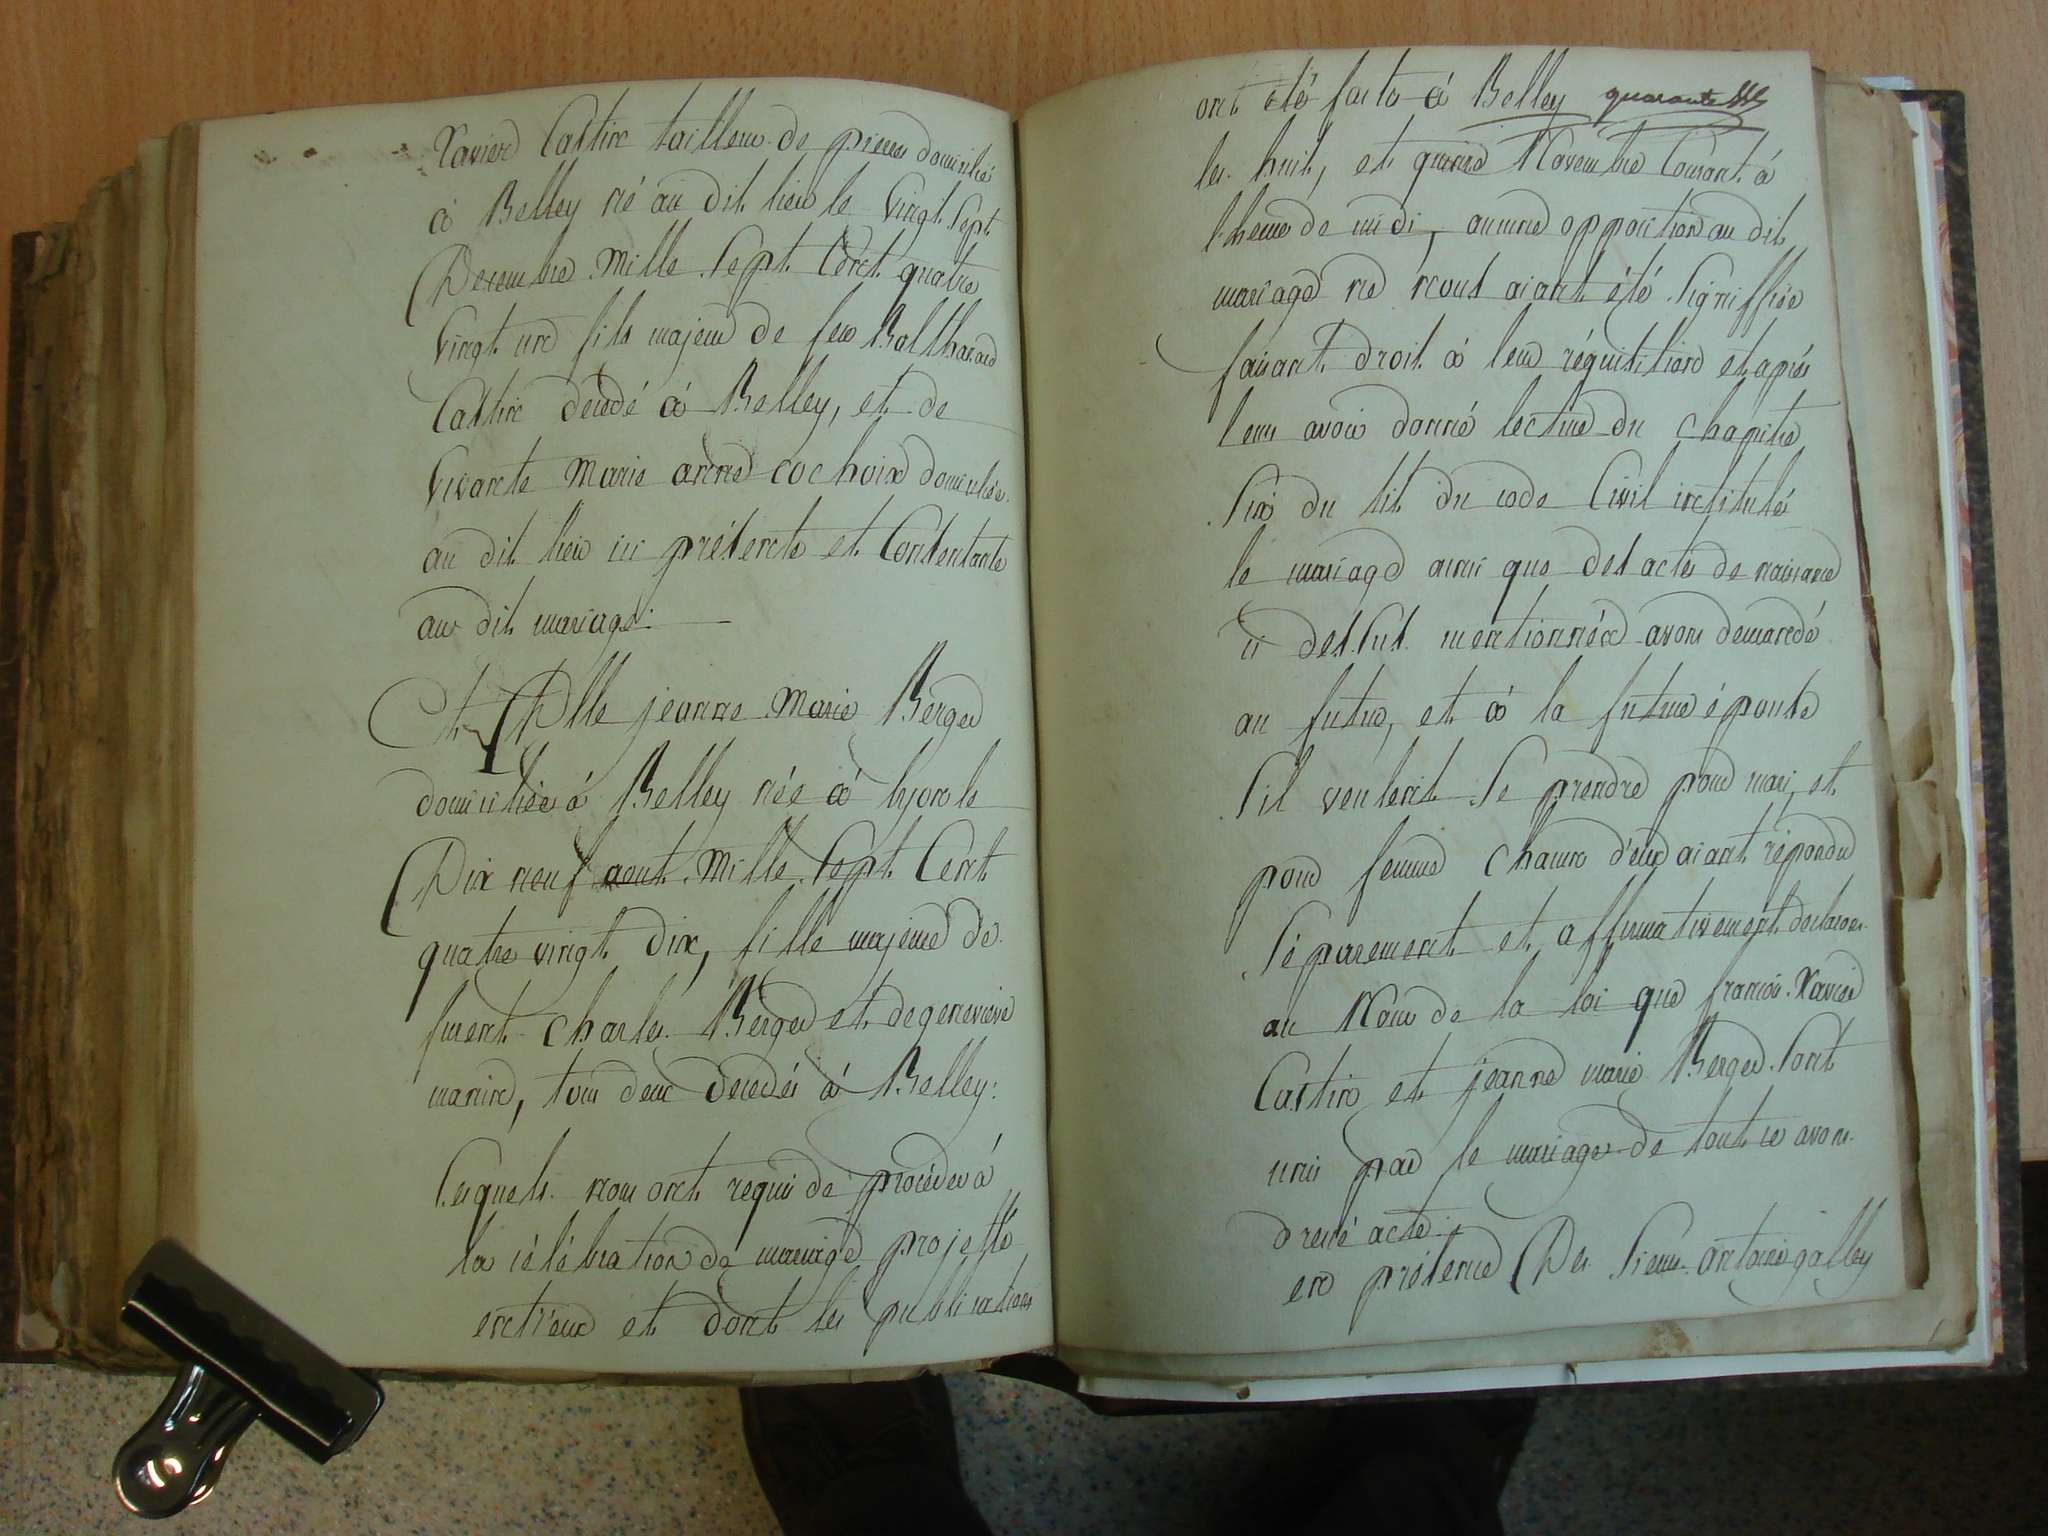 Xavier Castin tailleur de pierres domicilié
à Belley né au dit lieu le Vingt Sept
Decembre Mille Sept Cent quatre
Vingt un fils majeur de feu Balthasard
Castin decedé à Belley, et de
Vivante Marie anne Cochoix domiciliée
au dit lieu ici présente et Consentante
au dit mariage:
Et Dlle jeanne Marie Berger
domiciliée à Belley née à lyon le
Dix neuf aout Mille Sept Cent
quatre vingt dix, fille majeure de
furent Charles Berger et de genevieve
, tous deux decedés à Belley:
Lesquels nous ont requis de proceder à
la célébration de mariage projetté
entr'eux et dont les publications
ont été faite à Belley quarante
les huit, et quinze Novembre Courant à
l'heure de midi, aucune opposition au dit
mariage ne nous aiant été Signiffiée
faisant droit à leur réquisition et après
leur avoir donné lecture du chapitre
Six du tit. du code Civil institulé
le mariage ainsi que des actes de naissance
ci dessus mentionnée avons demandé
au futur, et à la future épouse
S'il veulent Se prendre pour mari, et
pour femme chacun d'eux aiant répondu
Séparement et affirmativement declarons
au Nom de la loi que françois Xavier
Castin et jeanne marie Berger Sont
unis par le mariage de tout ce avons
dressé acte:
en présence Des Sieurs antoine galley